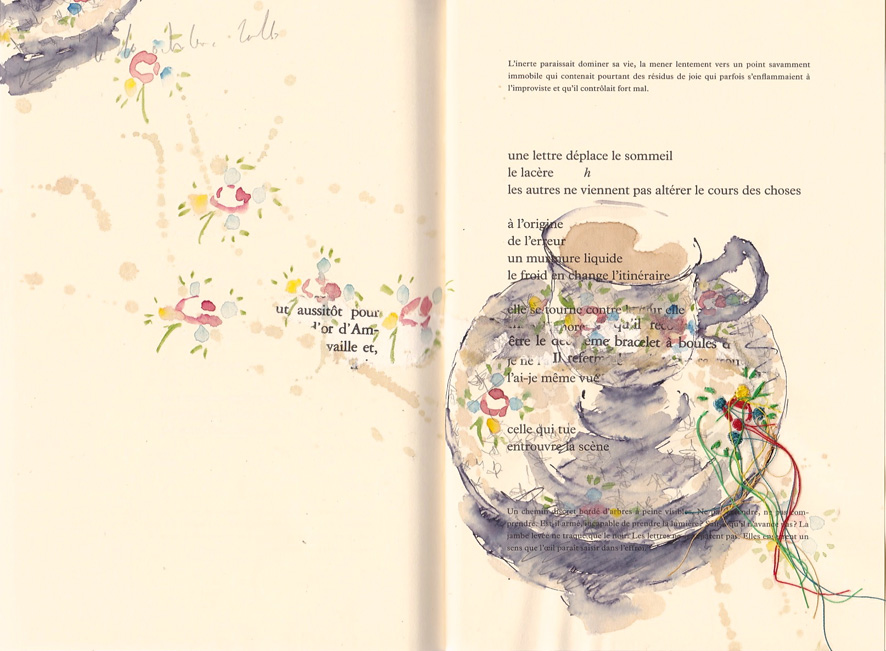 ut aussitôt pour
l'or d'Am-
vaille et,
L'inerte paraissait dominer sa vie, la mener lentement vers un point savamment
immobile qui contenait pourtant des résidus de joie qui parfois s'enflammaient à
l'improviste et qu'il contrôlait fort mal.
une lettre déplace le sommeil
le lacère h
les autres ne viennent pas altérer le cours des choses
à l'origine
de l'erreur
un murmure liquide
le froid en change l'itinéraire
elle se tourne contre elle
qu'il
être le bracelet à boules
je ne Il
l'ai-je même vue
celle qui tue
entrouvre la scène
Un chemin discret bordé d'arbres à peine visibles. Ne pas
prendre. incapable de prendre la lumière? qu'il n'avance pas? La
jambe levée ne traque que le noir. Les lettres pas. Elles un
sens que l'œil paraît saisir dans